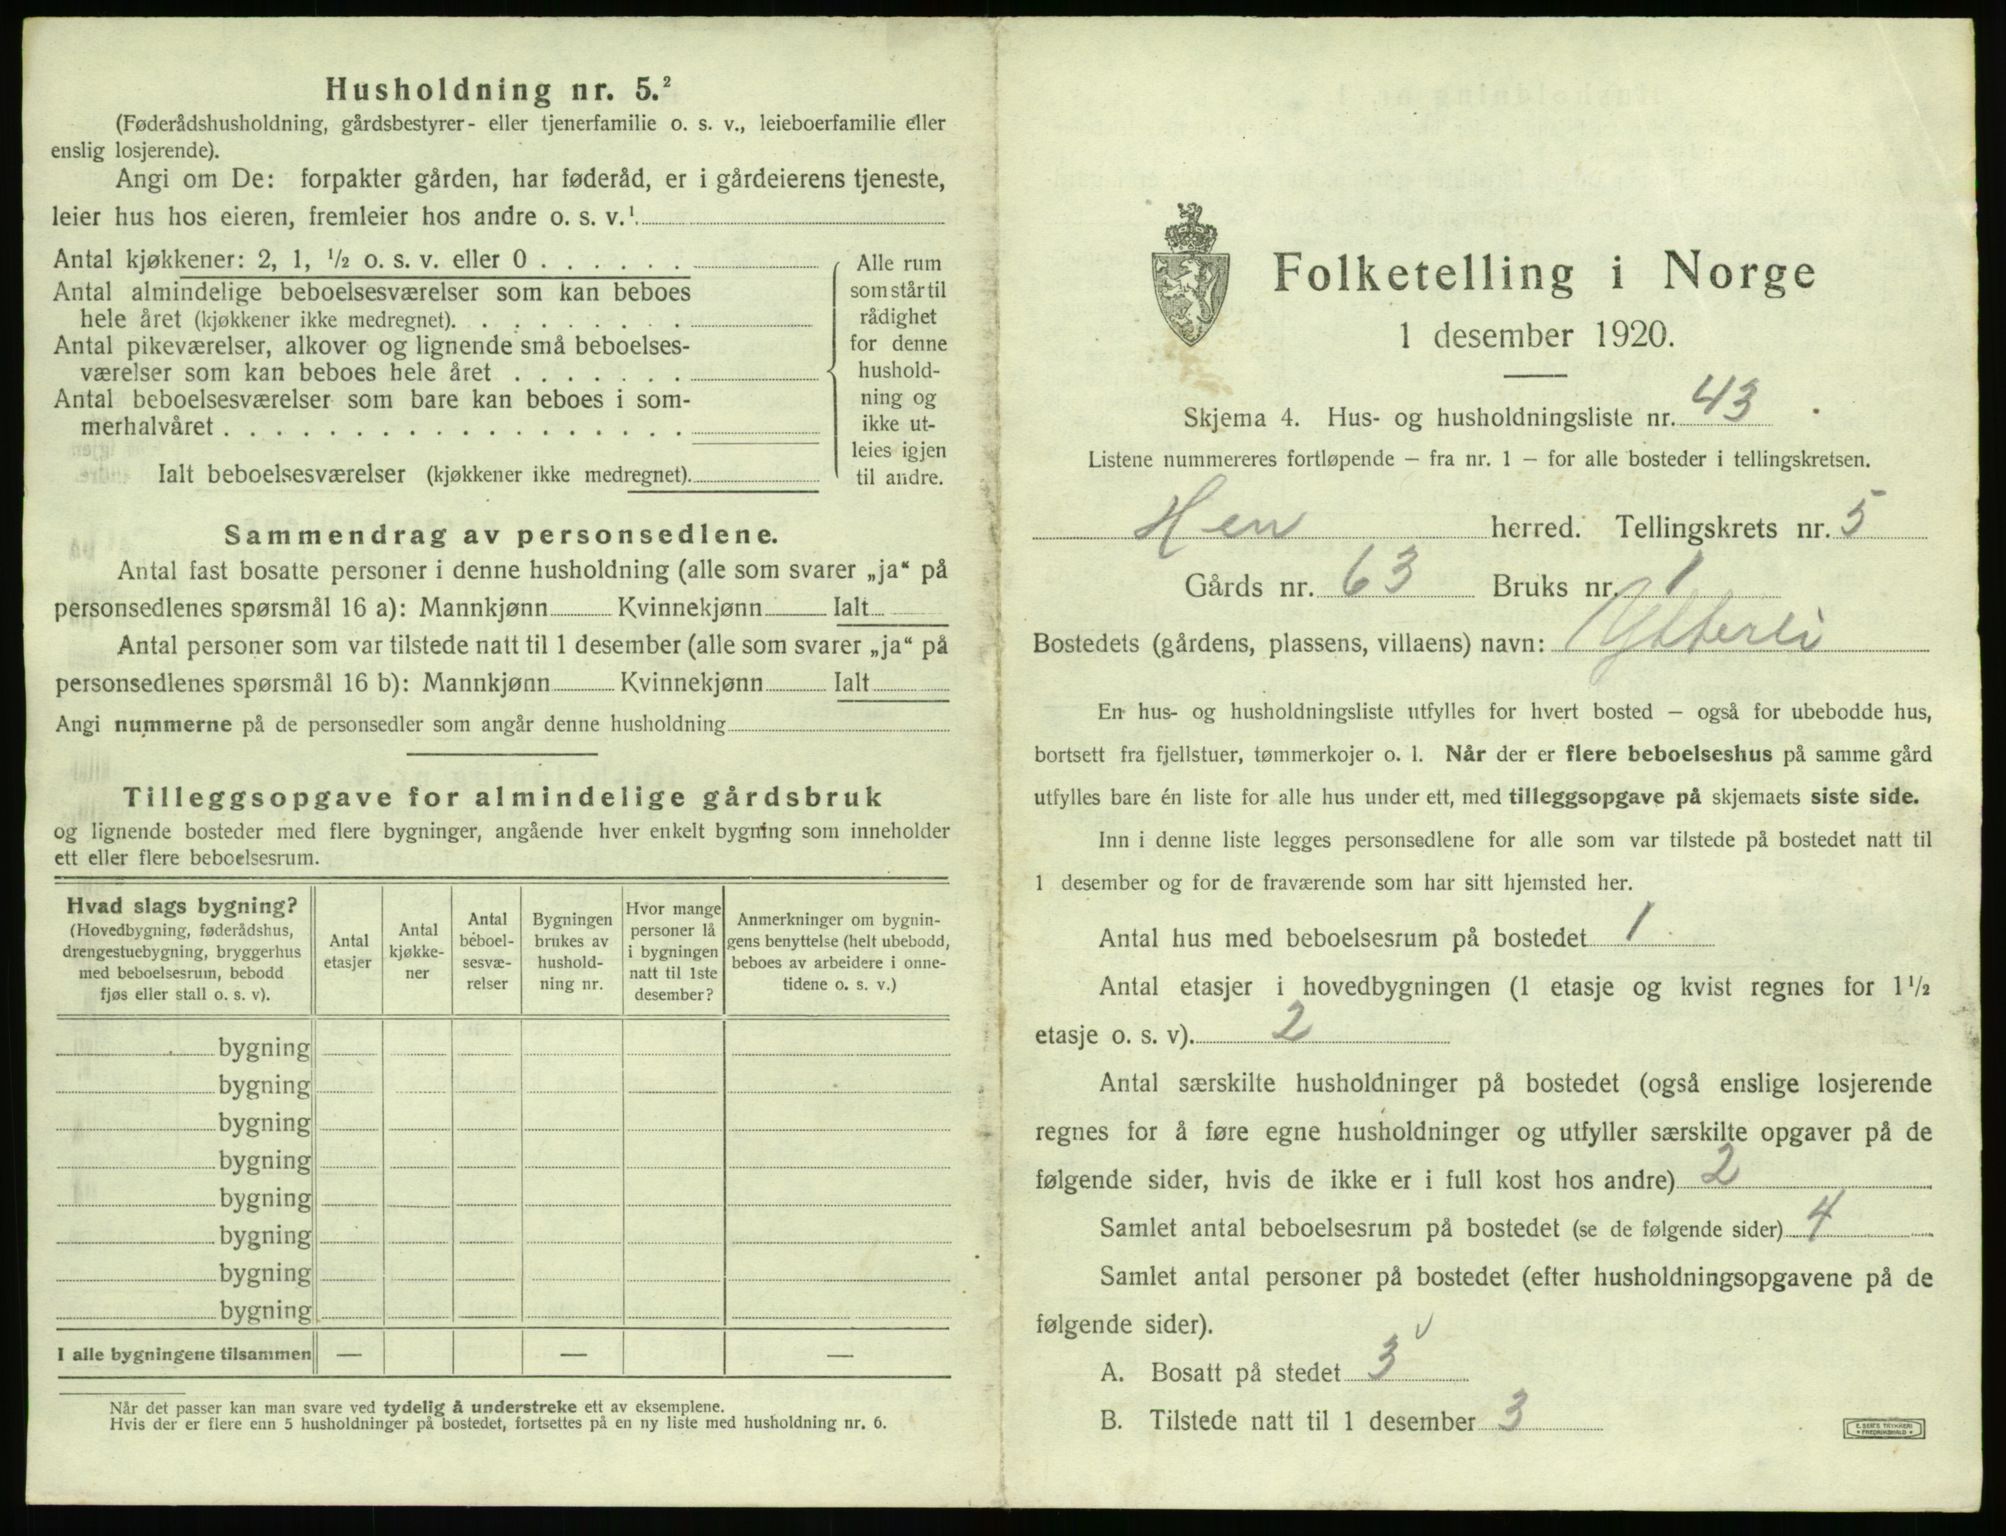 Husholdning nr. 5.²
(Føderådshusholdning, gårdsbestyrer- eller tjenerfamilie o. s. v., leieboerfamilie eller
enslig losjerende).
Angi om De: forpakter gården, har føderåd, er i gårdeierens tjeneste,
leier hus hos eieren, fremleier hos andre o. s. v.¹
Antal kjøkkener: 2, 1, ½ o. s. v. eller 0 . . . . . .
Antal almindelige beboelsesværelser som kan beboes
hele året (kjøkkener ikke medregnet). . . . . . . . .
Antal pikeværelser, alkover og lignende små beboelses-
værelser som kan beboes hele året . . . . . . .
Antal beboelsesværelser som bare kan beboes i som-
merhalvåret . . . . . . . . . . . . . . . . . .
Ialt beboelsesværelser (kjøkkener ikke medregnet).
Alle rum
som står til
rådighet
for denne
hushold-
ning og
ikke ut-
leies igjen
til andre.
Sammendrag av personsedlene.
Antal fast bosatte personer i denne husholdning (alle som svarer „ja“ på
personsedlenes spørsmål 16 a): Mannkjønn Kvinnekjønn Ialt
Antal personer som var tilstede natt til 1 desember (alle som svarer „ja“ på
personsedlenes spørsmål 16 b): Mannkjønn Kvinnekjønn Ialt
Angi nummerne på de personsedler som angår denne husholdning
Tilleggsopgave for almindelige gårdsbruk
og lignende bosteder med flere bygninger, angående hver enkelt bygning som inneholder
ett eller flere beboelsesrum.
Hvad slags bygning?
(Hovedbygning, føderådshus,
drengestuebygning, bryggerhus
med beboelsesrum, bebodd
fjøs eller stall o. s. v).
Antal
etasjer
Antal
kjøkke-
ner
Antal
beboel-
sesvæ-
relser
Bygningen
brukes av
hushold-
ning nr.
Hvor mange
personer lå
i bygningen
natt til 1ste
desember?
Anmerkninger om bygnin-
gens benyttelse (helt ubebodd,
beboes av arbeidere i onne-
tidene o. s. v.)
bygning
bygning
bygning
bygning
bygning
bygning
bygning
bygning
I alle bygningene tilsammen — — —
Når det passer kan man svare ved tydelig å understreke ett av eksemplene.
Hvis der er flere enn 5 husholdninger på bostedet, fortsettes på en ny liste med husholdning nr. 6.
Folketelling i Norge
1 desember 1920.
Skjema 4. Hus- og husholdningsliste nr. 43
Listene nummereres fortløpende – fra nr. 1 – for alle bosteder i tellingskretsen.
Hen herred. Tellingskrets nr. 5
Gårds nr. 63 Bruks nr. 1
Bostedets (gårdens, plassens, villaens) navn: Ytterli
En hus- og husholdningsliste utfylles for hvert bosted – også for ubebodde hus,
bortsett fra fjellstuer, tømmerkojer o. l. Når der er flere beboelseshus på samme gård
utfylles bare én liste for alle hus under ett, med tilleggsopgave på skjemaets siste side.
Inn i denne liste legges personsedlene for alle som var tilstede på bostedet natt til
1 desember og for de fraværende som har sitt hjemsted her.
Antal hus med beboelsesrum på bostedet 1
Antal etasjer i hovedbygningen (1 etasje og kvist regnes for 1½
etasje o. s. v). 2
Antal særskilte husholdninger på bostedet (også enslige losjerende
regnes for å føre egne husholdninger og utfyller særskilte opgaver på de
følgende sider, hvis de ikke er i full kost hos andre) 2
Samlet antal beboelsesrum på bostedet (se de følgende sider) 4
Samlet antal personer på bostedet (efter husholdningsopgavene på de
følgende sider).
A. Bosatt på stedet 3 v
B. Tilstede natt til 1 desember 3
E. SEM'S TRYKKERI
FREDRIKSHALD